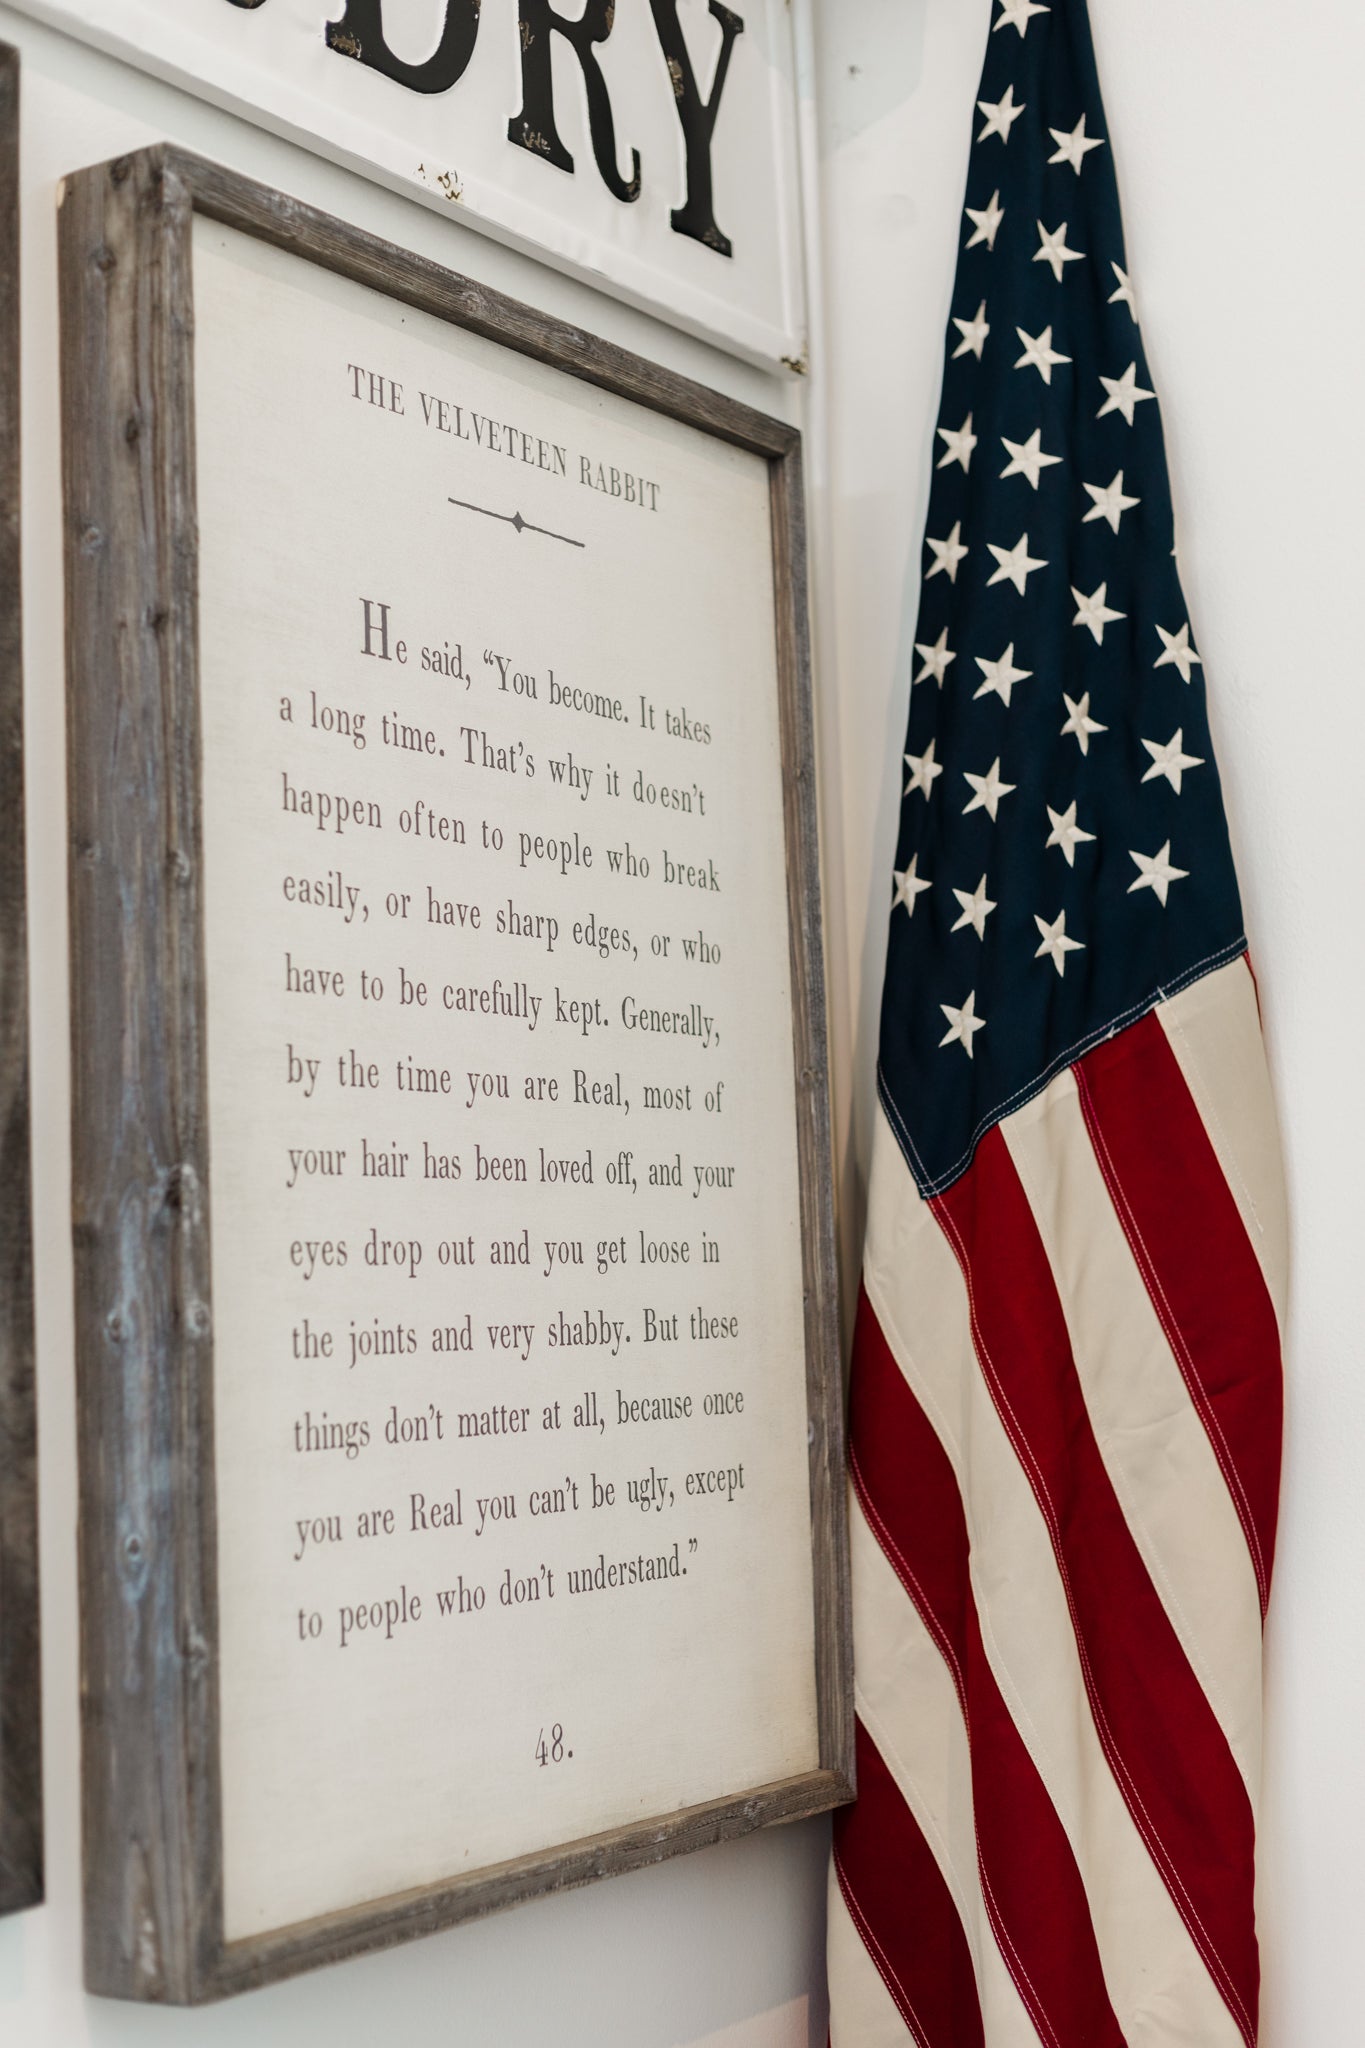 DRY
THE VELVETEEN RABBIT
He said, “You become. It takes
a long time. That’s why it doesn’t
happen often to people who break
easily, or have sharp edges, or who
have to be carefully kept. Generally,
by the time you are Real, most of
your hair has been loved off, and your
eyes drop out and you get loose in
the joints and very shabby. But these
things don’t matter at all, because once
you are Real you can’t be ugly, except
to people who don’t understand.”
48.